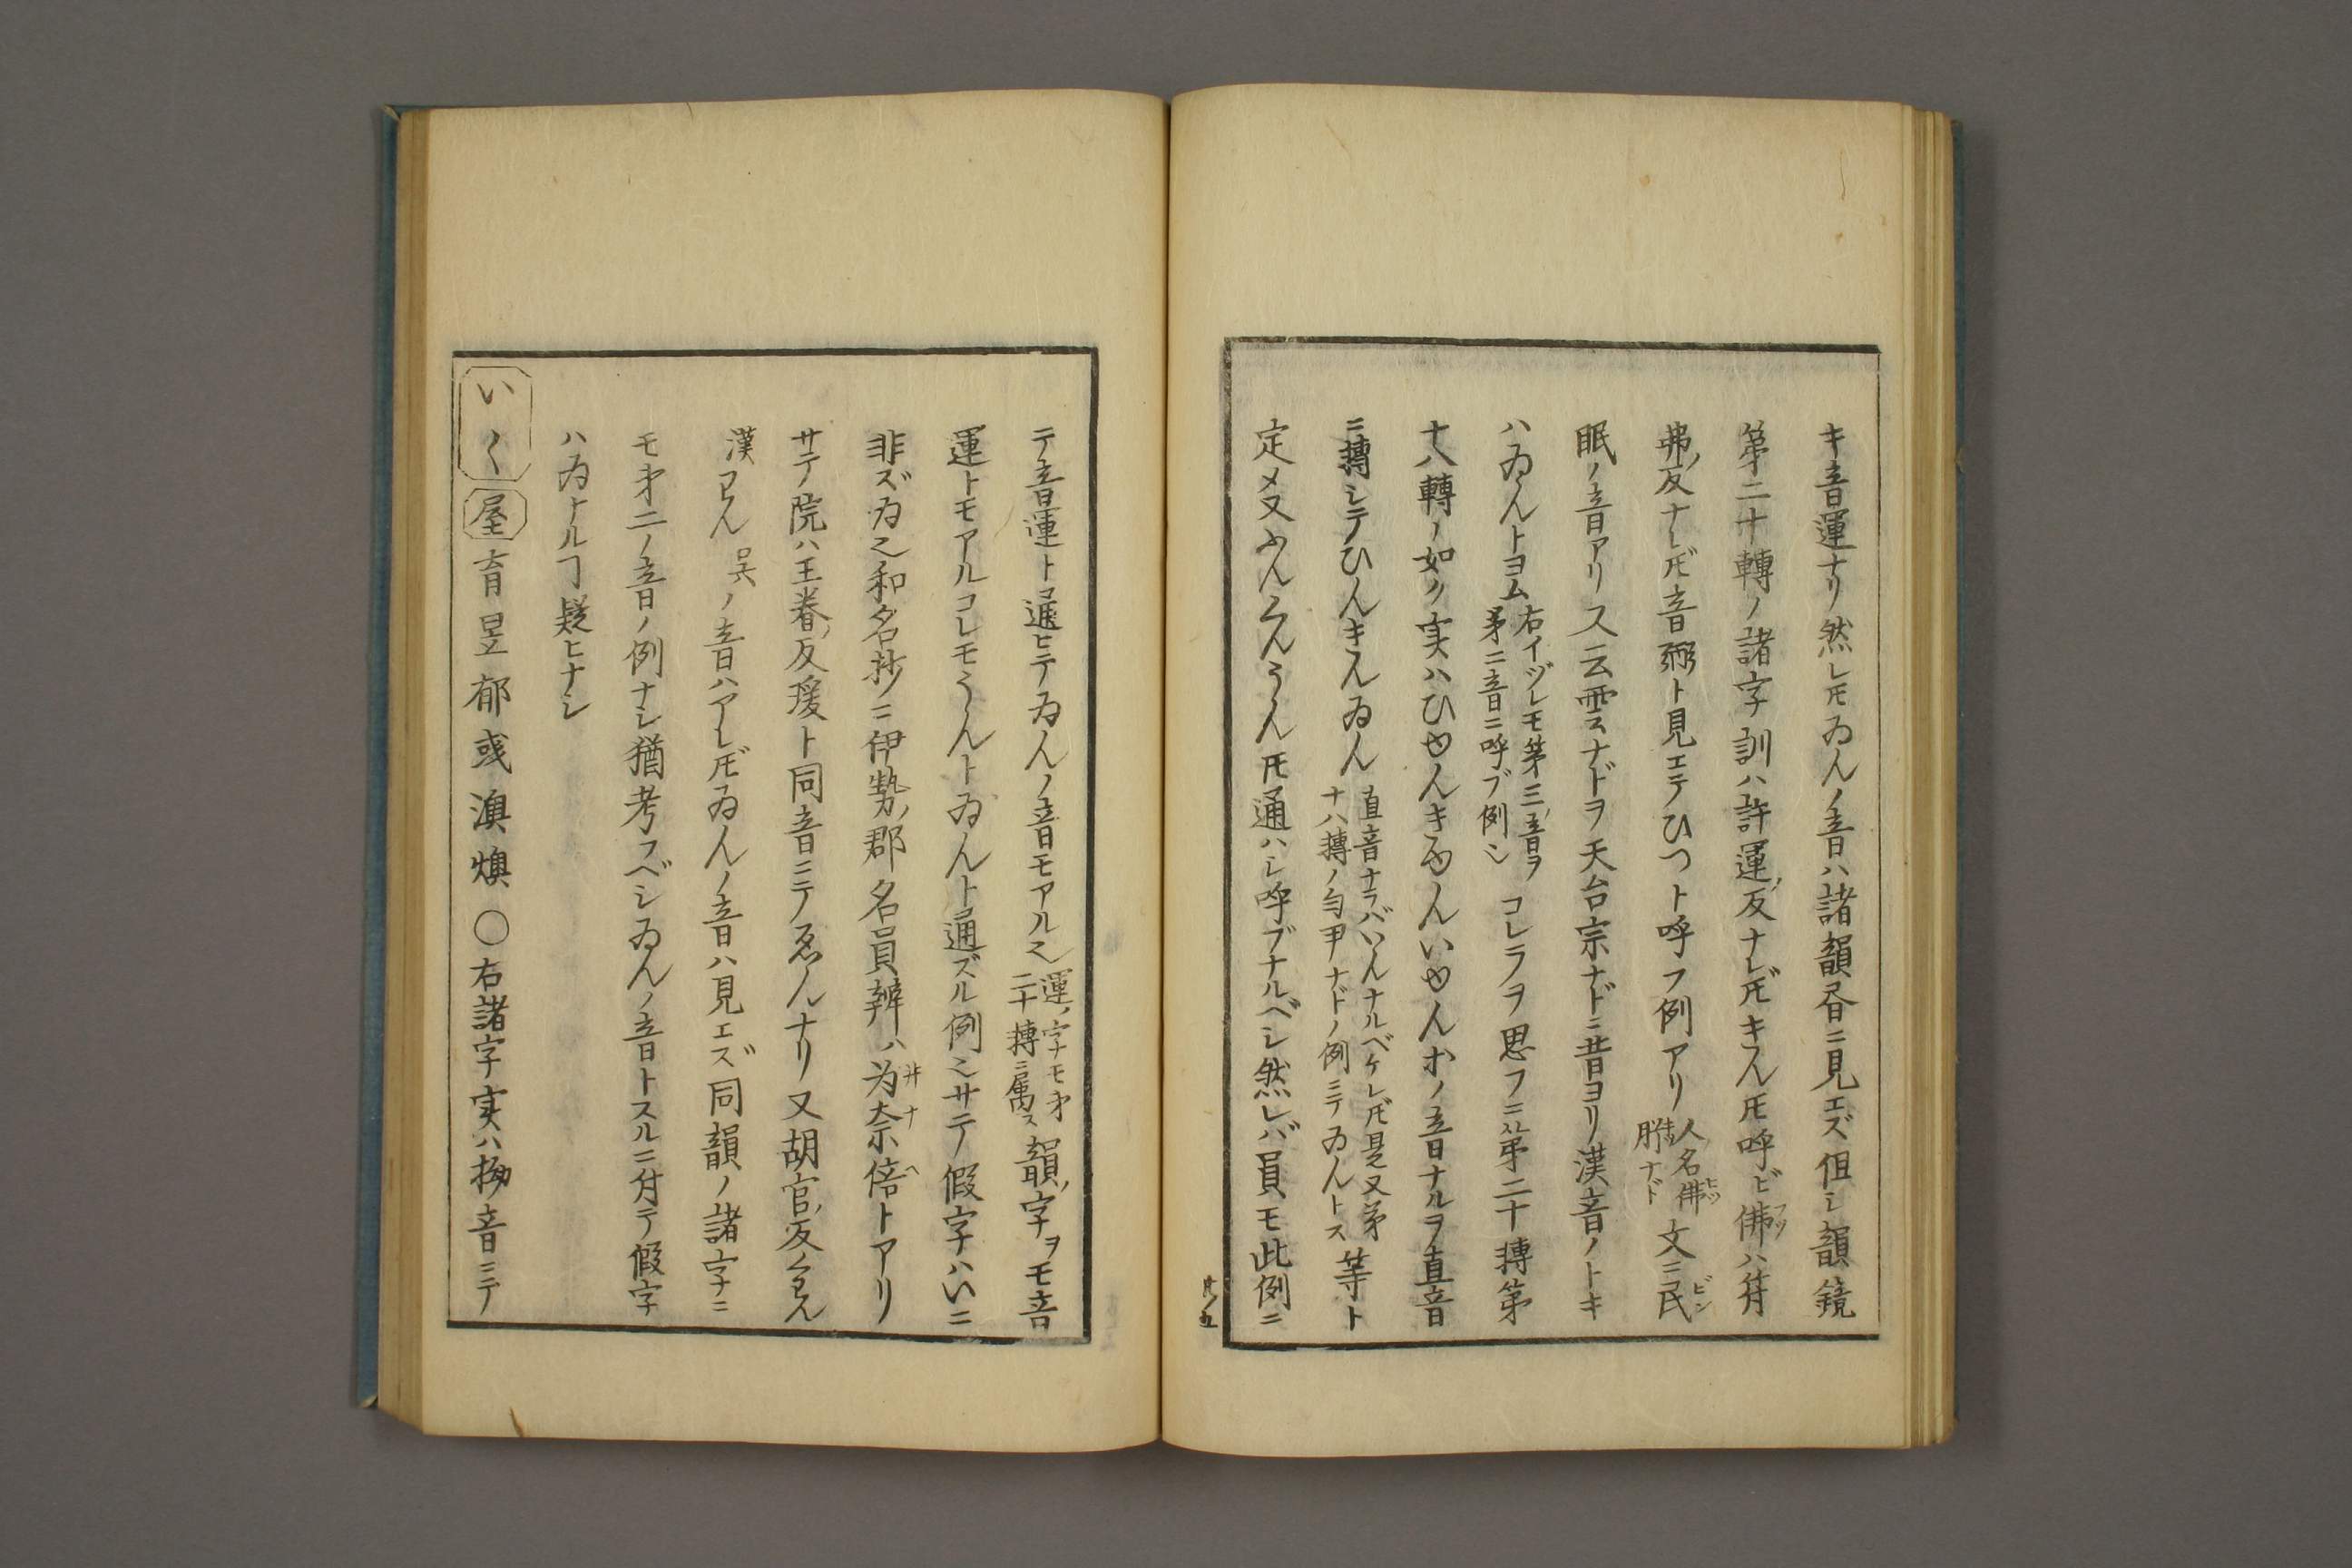 キ音運ナリ然レ𪜈ゐんノ音ハ諸韻昏ニ見エズ但シ韻鏡
第二十轉ノ諸字訓ハ許運ノ反ナレ𪜈きん𪜈呼ビ佛フツハ符
弗ノ反ナレ𪜈音弼ト見エテひつト呼フ例アリ人名佛ヒツ肸ナド文ニ民ビン
眠ノ音アリ又云雲ナドヲ天台宗ナドニ昔ヨリ漢音ノトキ
ハゐんトヨム右イヅレモ第三ノ音ヲ第二音ニ呼ブ例シコレラヲ思フニ第二十轉第
十八轉ノ如ク実ハひゆんきゆんいゆんホノ音ナルヲ直音
ニ轉シテひんきんゐん直音ナラバいんナルベケレ𪜈是又第十八轉ノ匀尹ナドノ例ニテゐんトス等ト
定メ又ふんくんうん𪜈通ハシ呼ブナルベシ然レバ員モ此例ニ
卅五
テ音運ト通ヒテゐんノ音モアル也運ノ字モ第二十轉ニ属ス韻ノ字ヲモ音
運トモアルコレモうんトゐんト通ズル例也サテ假字ハいニ
非ズゐ也和名抄ニ伊勢ノ郡名員辨ハ为井奈ナ倍ヘトアリ
サテ院ハ王眷ノ反瑗ト同音ニテゑんナリ又胡官ノ反くわん
漢わん呉ノ音ハアレ𪜈ゐんノ音ハ見エズ同韻ノ諸字ニ
モ第二ノ音ノ例ナシ猶考フベシゐんノ音トスルニ付テ假字
ハゐナルヿ疑ヒナシ
いく 屋 育昱郁彧澳燠〇右諸字実ハ拗音ニテ